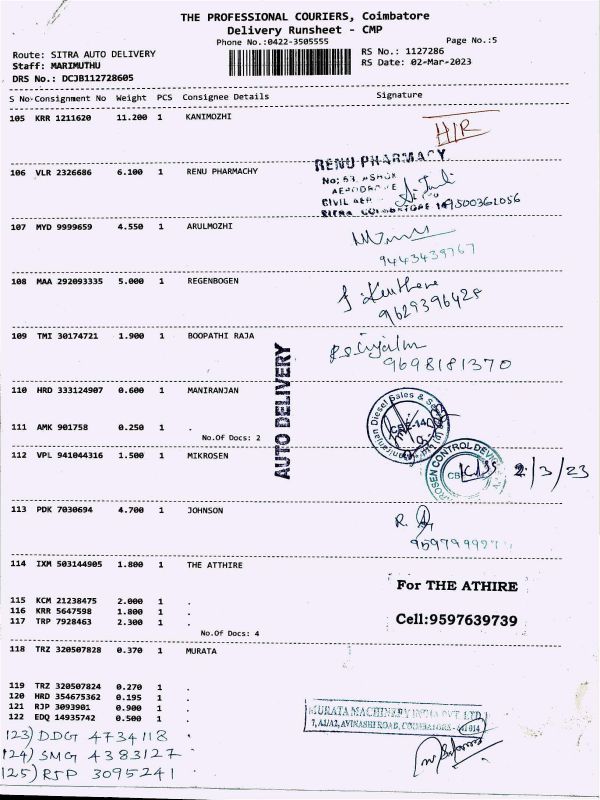 THE PROFESSIONAL COURIERS, Coimbatore
Delivery Runsheet - CMP
Phone No.:0422-3505555
Page No.:5
Route: SITRA AUTO DELIVERY
RS No.: 1127286
Staff: MARIMUTHU
RS Date: 02-Mar-2023
DRS No.: DCJB112728605
S No Consignment No Weight PCS Consignee Details Signature
105 KRR 1211620 11.200 1 KANIMOZHI
H/R
106 VLR 2326686 6.100 1 RENU PHARMACHY
RENU PHARMACY
No; 53, ASHOK
AERODROME
CIVIL AER
SITRA COIMBATORE 14
9500361056
107 MYD 9999659 4.550 1 ARULMOZHI
9443439767
108 MAA 292093335 5.000 1 REGENBOGEN
9629396428
109 TMI 30174721 1.900 1 BOOPATHI RAJA
9698181370
AUTO DELIVERY
110 HRD 333124907 0.600 1 MANIRANJAN
Maniranjan Diesel Sales &
CBE-14
111 AMK 901758 0.250 1 .
No.Of Docs: 2
112 VPL 941044316 1.500 1 MIKROSEN
ROSEN CONTROL DEVI
2/3/23
113 PDK 7030694 4.700 1 JOHNSON
114 IXM 503144905 1.800 1 THE ATTHIRE
For THE ATHIRE
115 KCM 21238475 2.000 1 .
116 KRR 5647598 1.800 1 .
117 TRP 7928463 2.300 1 .
Cell:9597639739
No.Of Docs: 4
118 TRZ 320507828 0.370 1 MURATA
119 TRZ 320507824 0.270 1 .
120 HRD 354675362 0.195 1 .
121 RJP 3093901 0.900 1 .
122 EDQ 14935742 0.500 1 .
MURATA MACHINERY INDIA PVT. LTD.
AVINASHI ROAD, COIMBATORE - 641 014
123) DDG 4734118
124) SMG 4383127
125) RJP 3095241